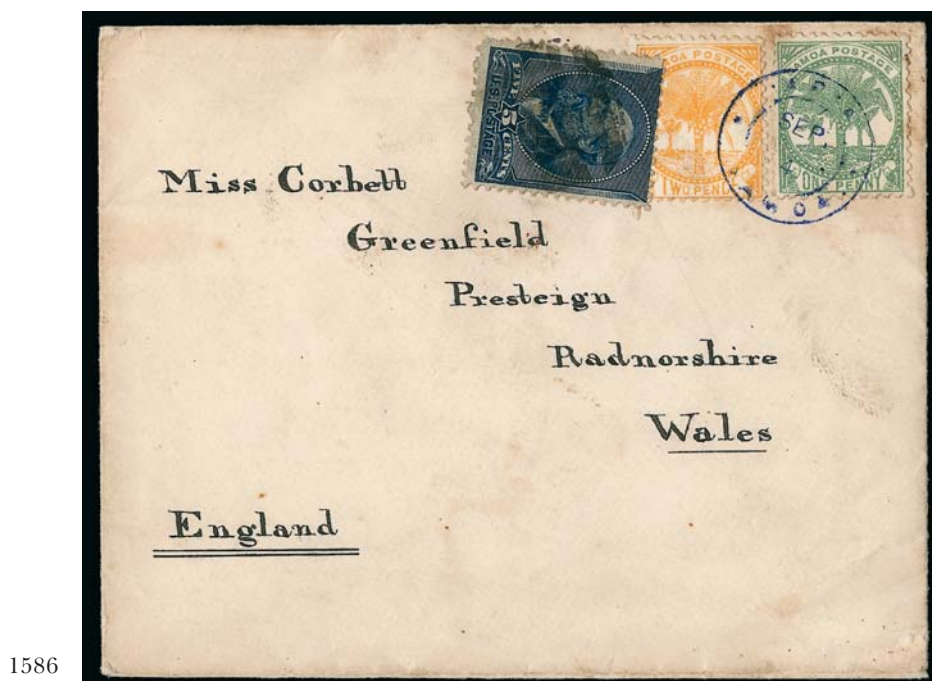 FIVE 5 CENTS
U.S. POSTAGE
SAMOA POSTAGE
TWO PENCE
SAMOA POSTAGE
ONE PENNY
APIA
SEP.
4
SAMOA
Miss Corbett
Greenfield
Presteign
Radnorshire
Wales
England
1586